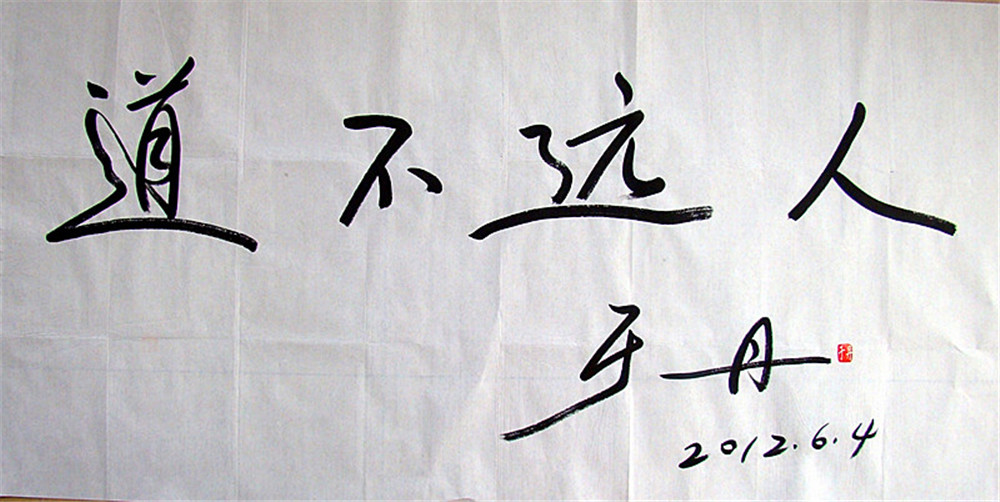 道不远人
于丹
2012.6.4